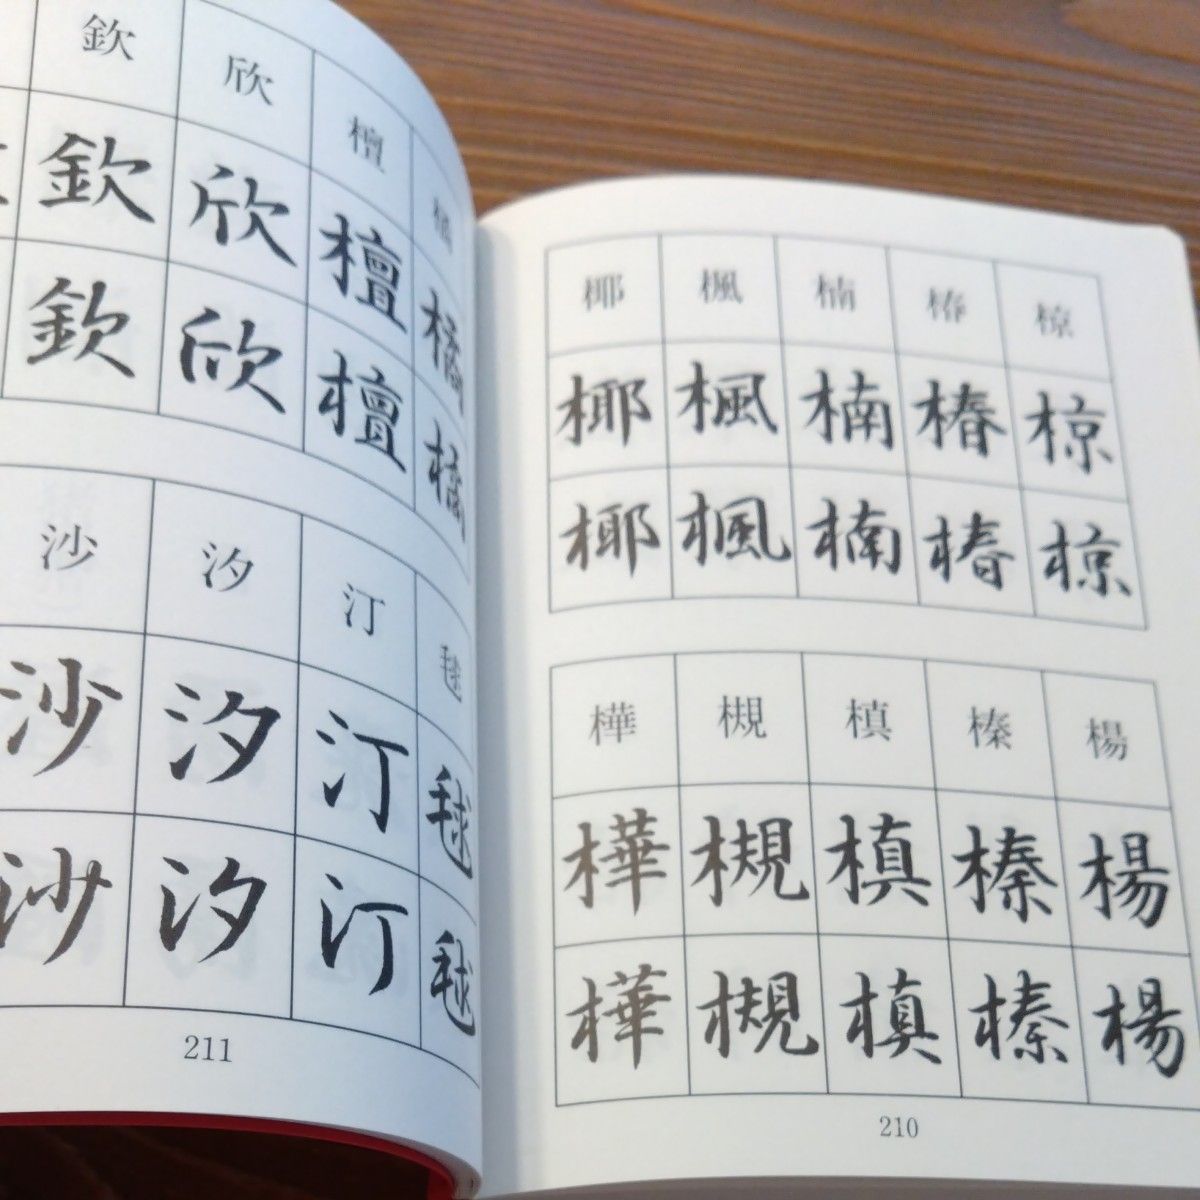 椋椋椋
椿椿椿
楠楠楠
楓楓楓
椰椰椰
楊楊楊
榛榛榛
槙槙槙
槻槻槻
樺樺樺
210
橘橘橘
檀檀檀
欣欣欣
欽欽欽
毬毬毬
汀汀汀
汐汐汐
沙沙沙
211